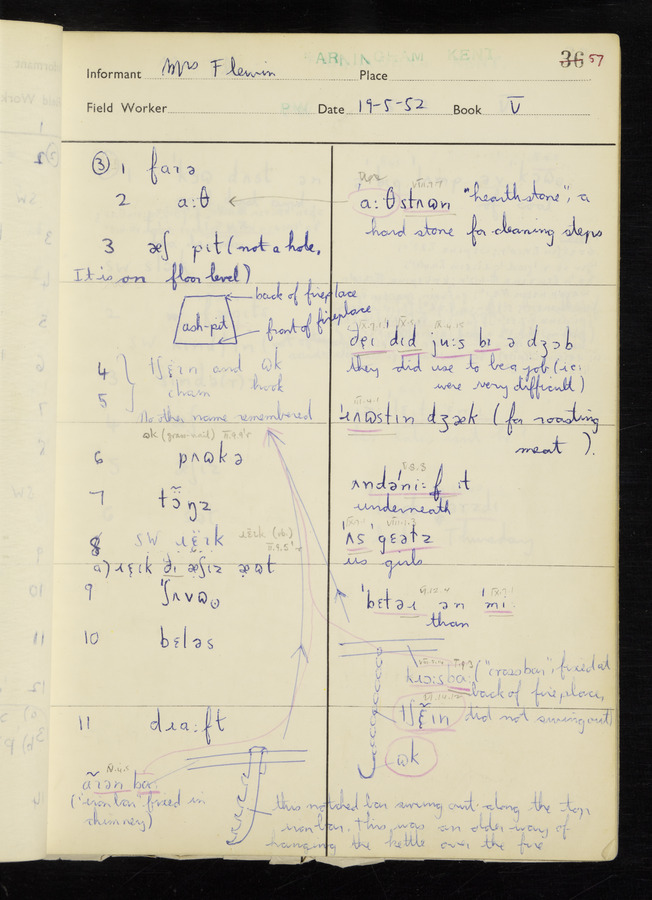 36 57
Informant Mrs Flewin Place
Field Worker Date 19-5-52 Book V
③ 1 faɪə
2 a:θ
3 æʃ pit (not a hole.
It is on floor level)
back of fireplace
ash-pit
front of fireplace
4 tʃɛ̈ɪn and ɒk
5 chain hook
No other name remembered
6 pʌɒkə
7 tɔ̃ŋz
8 SW ɹɛ̈ɪk
a) ɹɛɪk ði æʃɪz æɒt
9 ʃʌvɒ
10 bɛləs
11 dɹa:ft
("iron bar" fixed in
chimney)
a:θstʌɒn "hearthstone", a
hard stone for cleaning steps
ðɛɪ dɪd ju:s bɪ ə dʒɔb
they did use to be a job (i.e.
were very difficult)
ɹʌɒstɪn dʒæk (for roasting
meat).
ʌndəni:f ɪt
underneath
ʌs gɛətz
us girls
bɛtəɹ ən mi:
than
("crossbar", fixed at
back of fireplace,
tʃɛ̈ɪn did not swing out)
ɒk
this notched bar swung out along the top
iron bar. This was an older way of
hanging the kettle over the fire